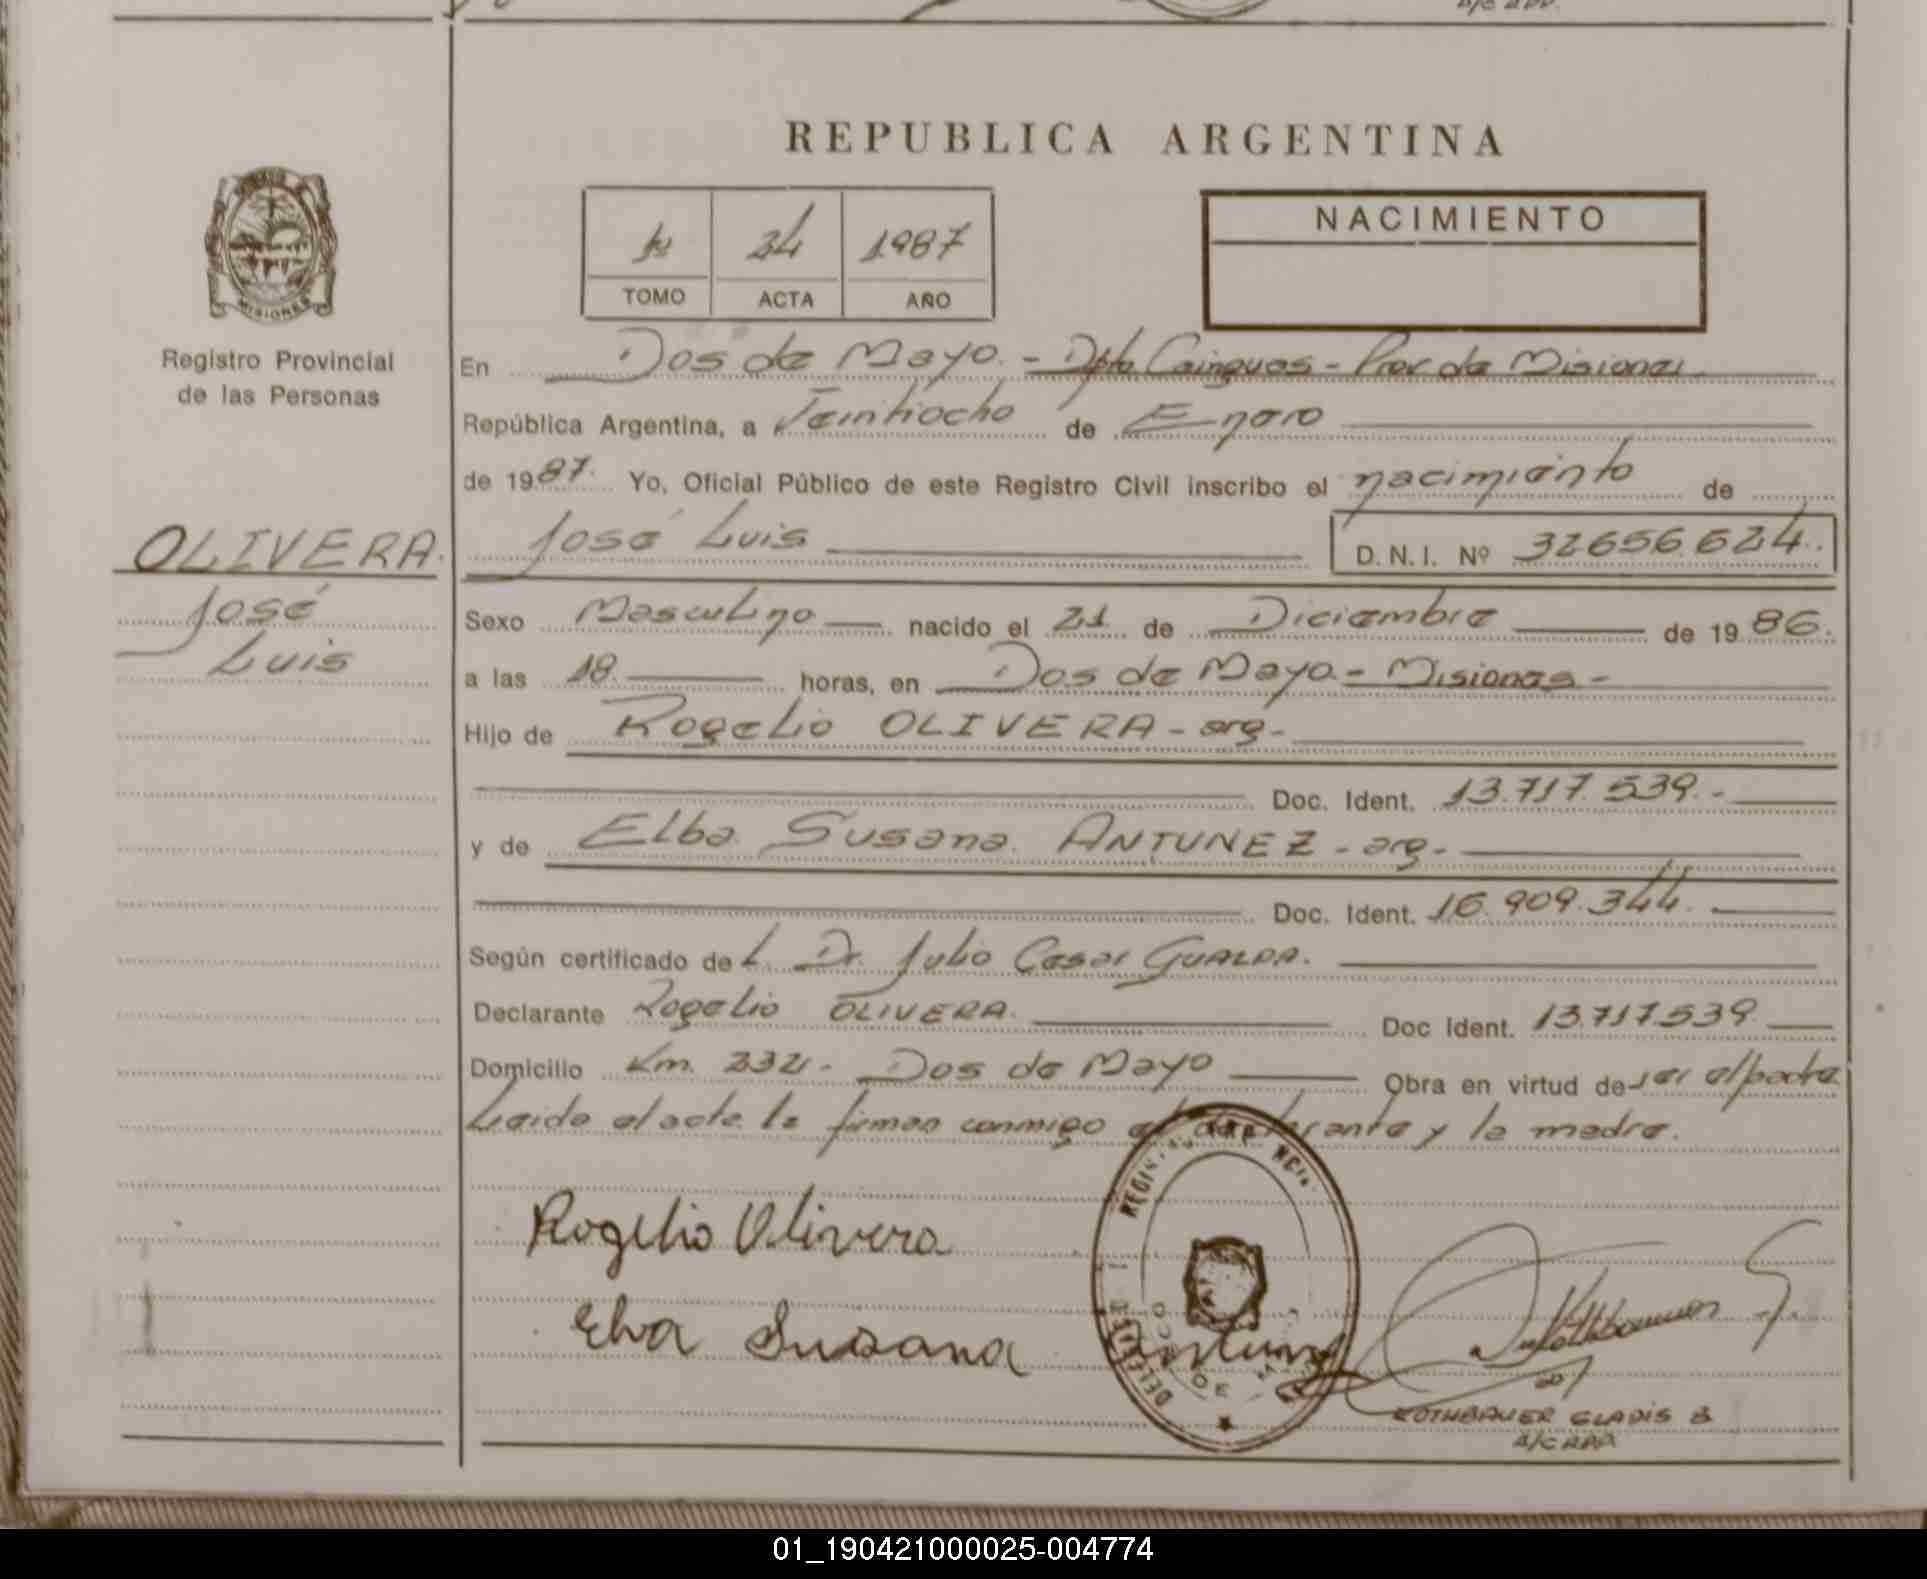 REPUBLICA ARGENTINA
34 1987
TOMO ACTA AÑO
NACIMIENTO
MISIONES
Registro Provincial
de las Personas
OLIVERA
José
Luis
En Dos de Mayo - Dpto. Cainguas - Prov de Misiones
República Argentina, a Veintiocho de Enero
de 1987. Yo, Oficial Público de este Registro Civil inscribo el nacimiento de
José Luis D.N.I. Nº 32656624
Sexo Masculino nacido el 21 de Diciembre de 1986.
a las 18 horas, en Dos de Mayo - Misiones -
Hijo de Rogelio OLIVERA - arg -
Doc. Ident. 13.717.539.-
y de Elba Susana ANTUNEZ - arg -
Doc. Ident. 16.909.344.
Según certificado de L. Dr. Julio Cesar GUALDA.
Declarante Rogelio OLIVERA. Doc Ident. 13.717.539
Domicilio Km. Dos de Mayo Obra en virtud de ser el padre
Leida el acta la firman conmigo el declarante y la madre.
Rogelio Olivera
Elva Susana Antunez
ROTHBAUER GLADIS B
A/C
01_190421000025-004774